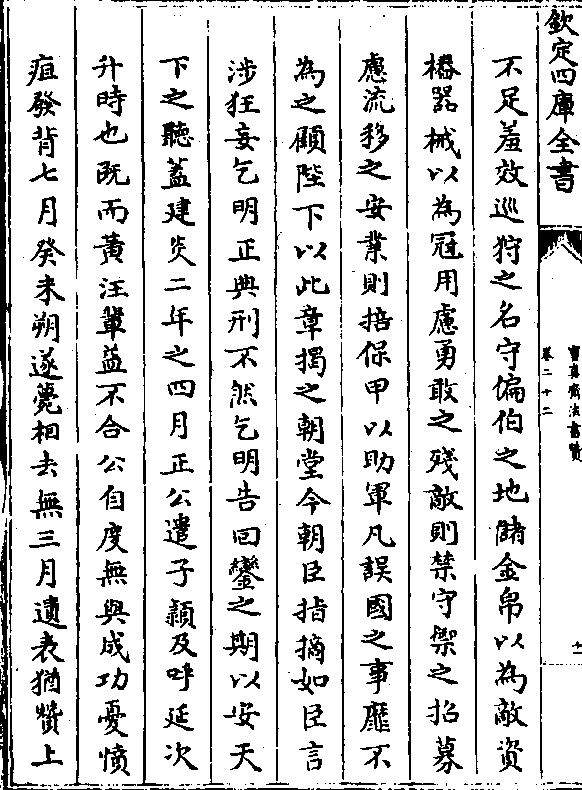 欽定四庫全書
寶真齋法書贊
卷二十二
十一
不足羞效巡狩之名守偏伯之地儲金帛以為敵資
樁器械以為冦用慮勇敢之殘敵則禁守禦之招募
慮流移之安業則掊保甲以助軍凡誤國之事靡不
為之願陛下以此章揭之朝堂今朝臣指摘如臣言
涉狂妄乞明正典刑不然乞明告回鑾之期以安天
下之聽蓋建炎二年之四月正公遣子穎及呼延次
升時也既而黃汪輩益不合公自度無與成功憂憤
疽發背七月癸未朔遂薨相去無三月遺表猶贊上